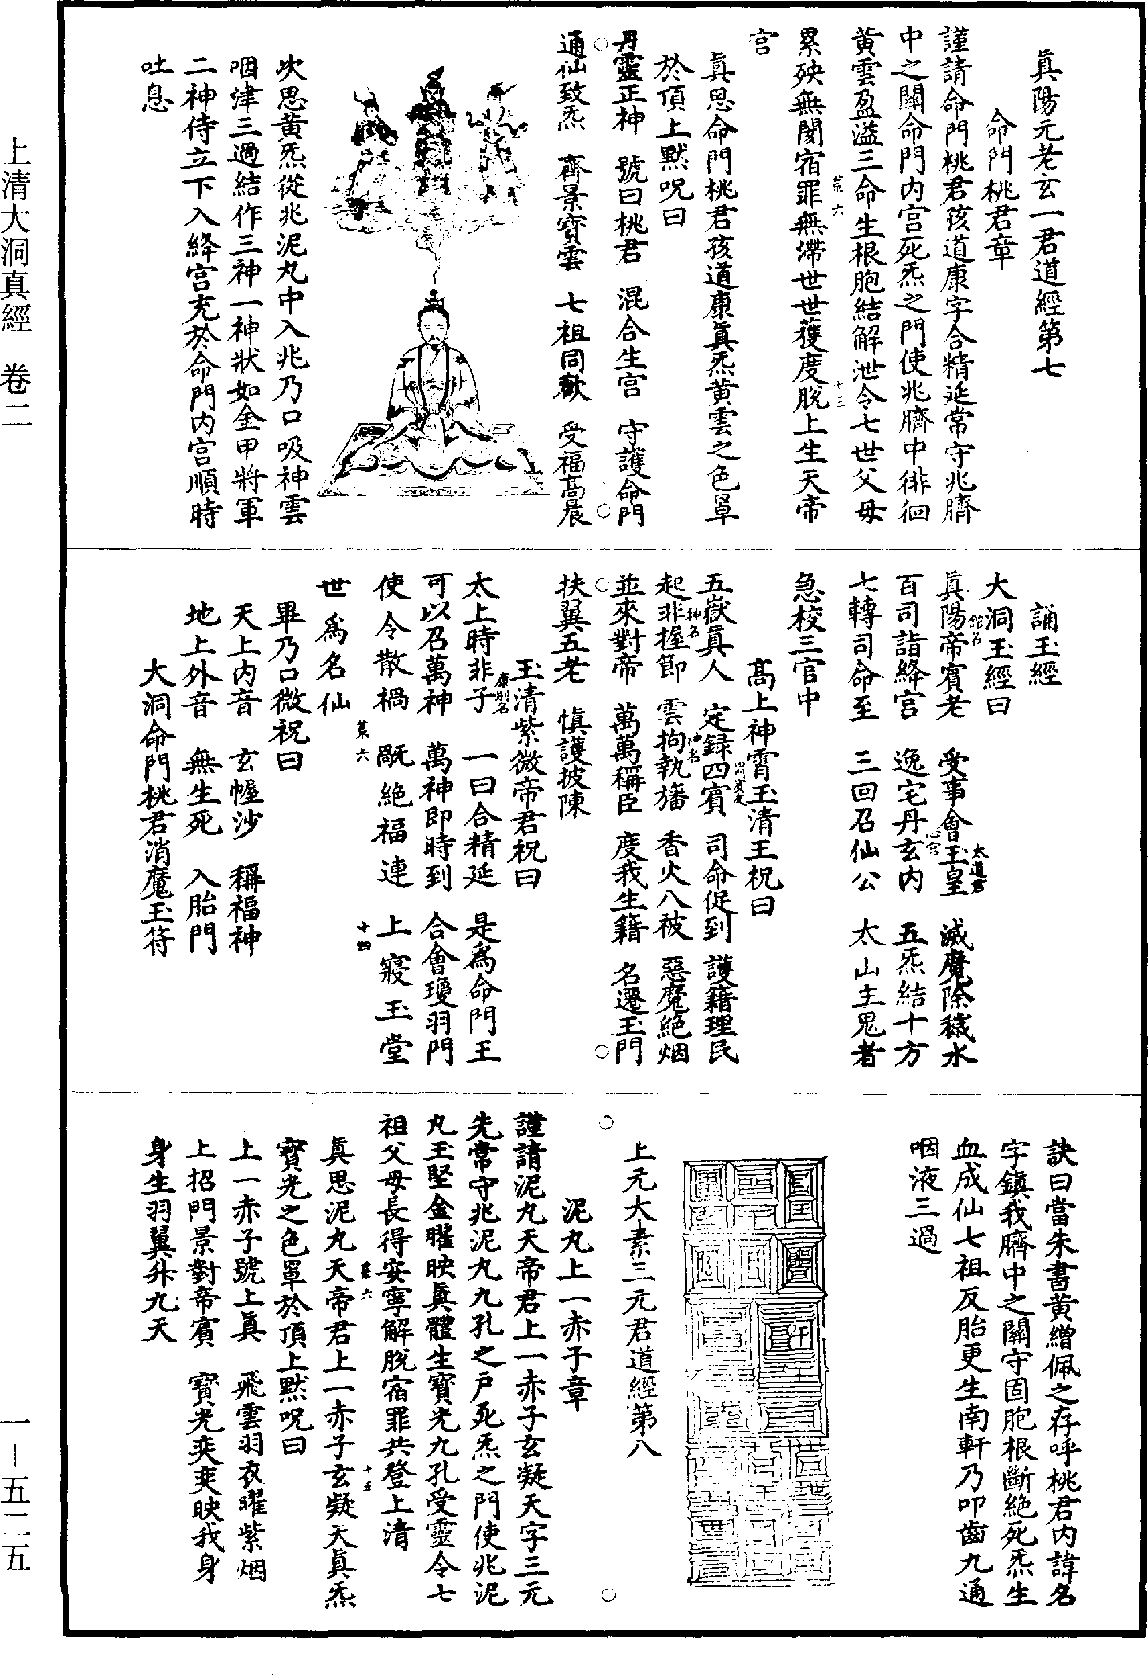 上清大洞真經　卷二
真陽元老玄一君道經第七
命門桃君章
謹請命門桃君孩道康字合精延常守兆臍
中之關命門內宮死炁之門使兆臍中徘徊
黃雲盈溢三命生根胞結解泄令七世父母
累殃無閡宿罪無滯世世獲度脫上生天帝
宮
真思命門桃君孩道康真炁黃雲之色罩
於頂上默呪曰
丹靈正神　號曰桃君　混合生宮　守護命門
通仙致炁　齊景寶雲　七祖同歡　受福高晨
次思黃炁從兆泥丸中入兆乃口吸神雲
咽津三過結作三神一神狀如金甲將軍
二神侍立下入絳宮充於命門內宮順時
吐息
誦玉經
大洞玉經曰
真陽帝賓老　受事會玉皇　滅魔除穢水
百司詣絳宮　逸宅丹玄內　五炁結十方
七轉司命至　三回召仙公　太山主鬼者
急校三官中
高上神霄玉清王祝曰
五嶽真人　定錄四賓　司命促到　護籍理民
起非握節　雲拘執旛　香火八被　惡魔絕烟
並來對帝　萬萬稱臣　度我生籍　名遷玉門
扶翼五老　慎護披陳
玉清紫微帝君祝曰
太上時非子　一曰合精延　是為命門王
可以召萬神　萬神即時到　合會瓊羽門
使令散禍　翫絕福連　上寢玉堂
世為名仙
畢乃口微祝曰
天上內音　玄幢沙　稱福神
地上外音　無生死　入胎門
大洞命門桃君消魔玉符
訣曰當朱書黃繒佩之存呼桃君內諱名
字鎮我臍中之關守固胞根斷絕死炁生
血成仙七祖反胎更生南軒乃叩齒九通
咽液三過
上元大素三元君道經第八
泥丸上一赤子章
謹請泥丸天帝君上一赤子玄凝天字三元
先常守兆泥丸九孔之戶死炁之門使兆泥
丸玉堅金曜映真體生寶光九孔受靈令七
祖父母長得安寧解脫宿罪共登上清
真思泥丸天帝君上一赤子玄凝天真炁
寶光之色罩於頂上默呪曰
上一赤子號上真　飛雲羽衣曜紫烟
上招門景對帝賓　寶光奕奕映我身
身生羽翼升九天
一—五二五